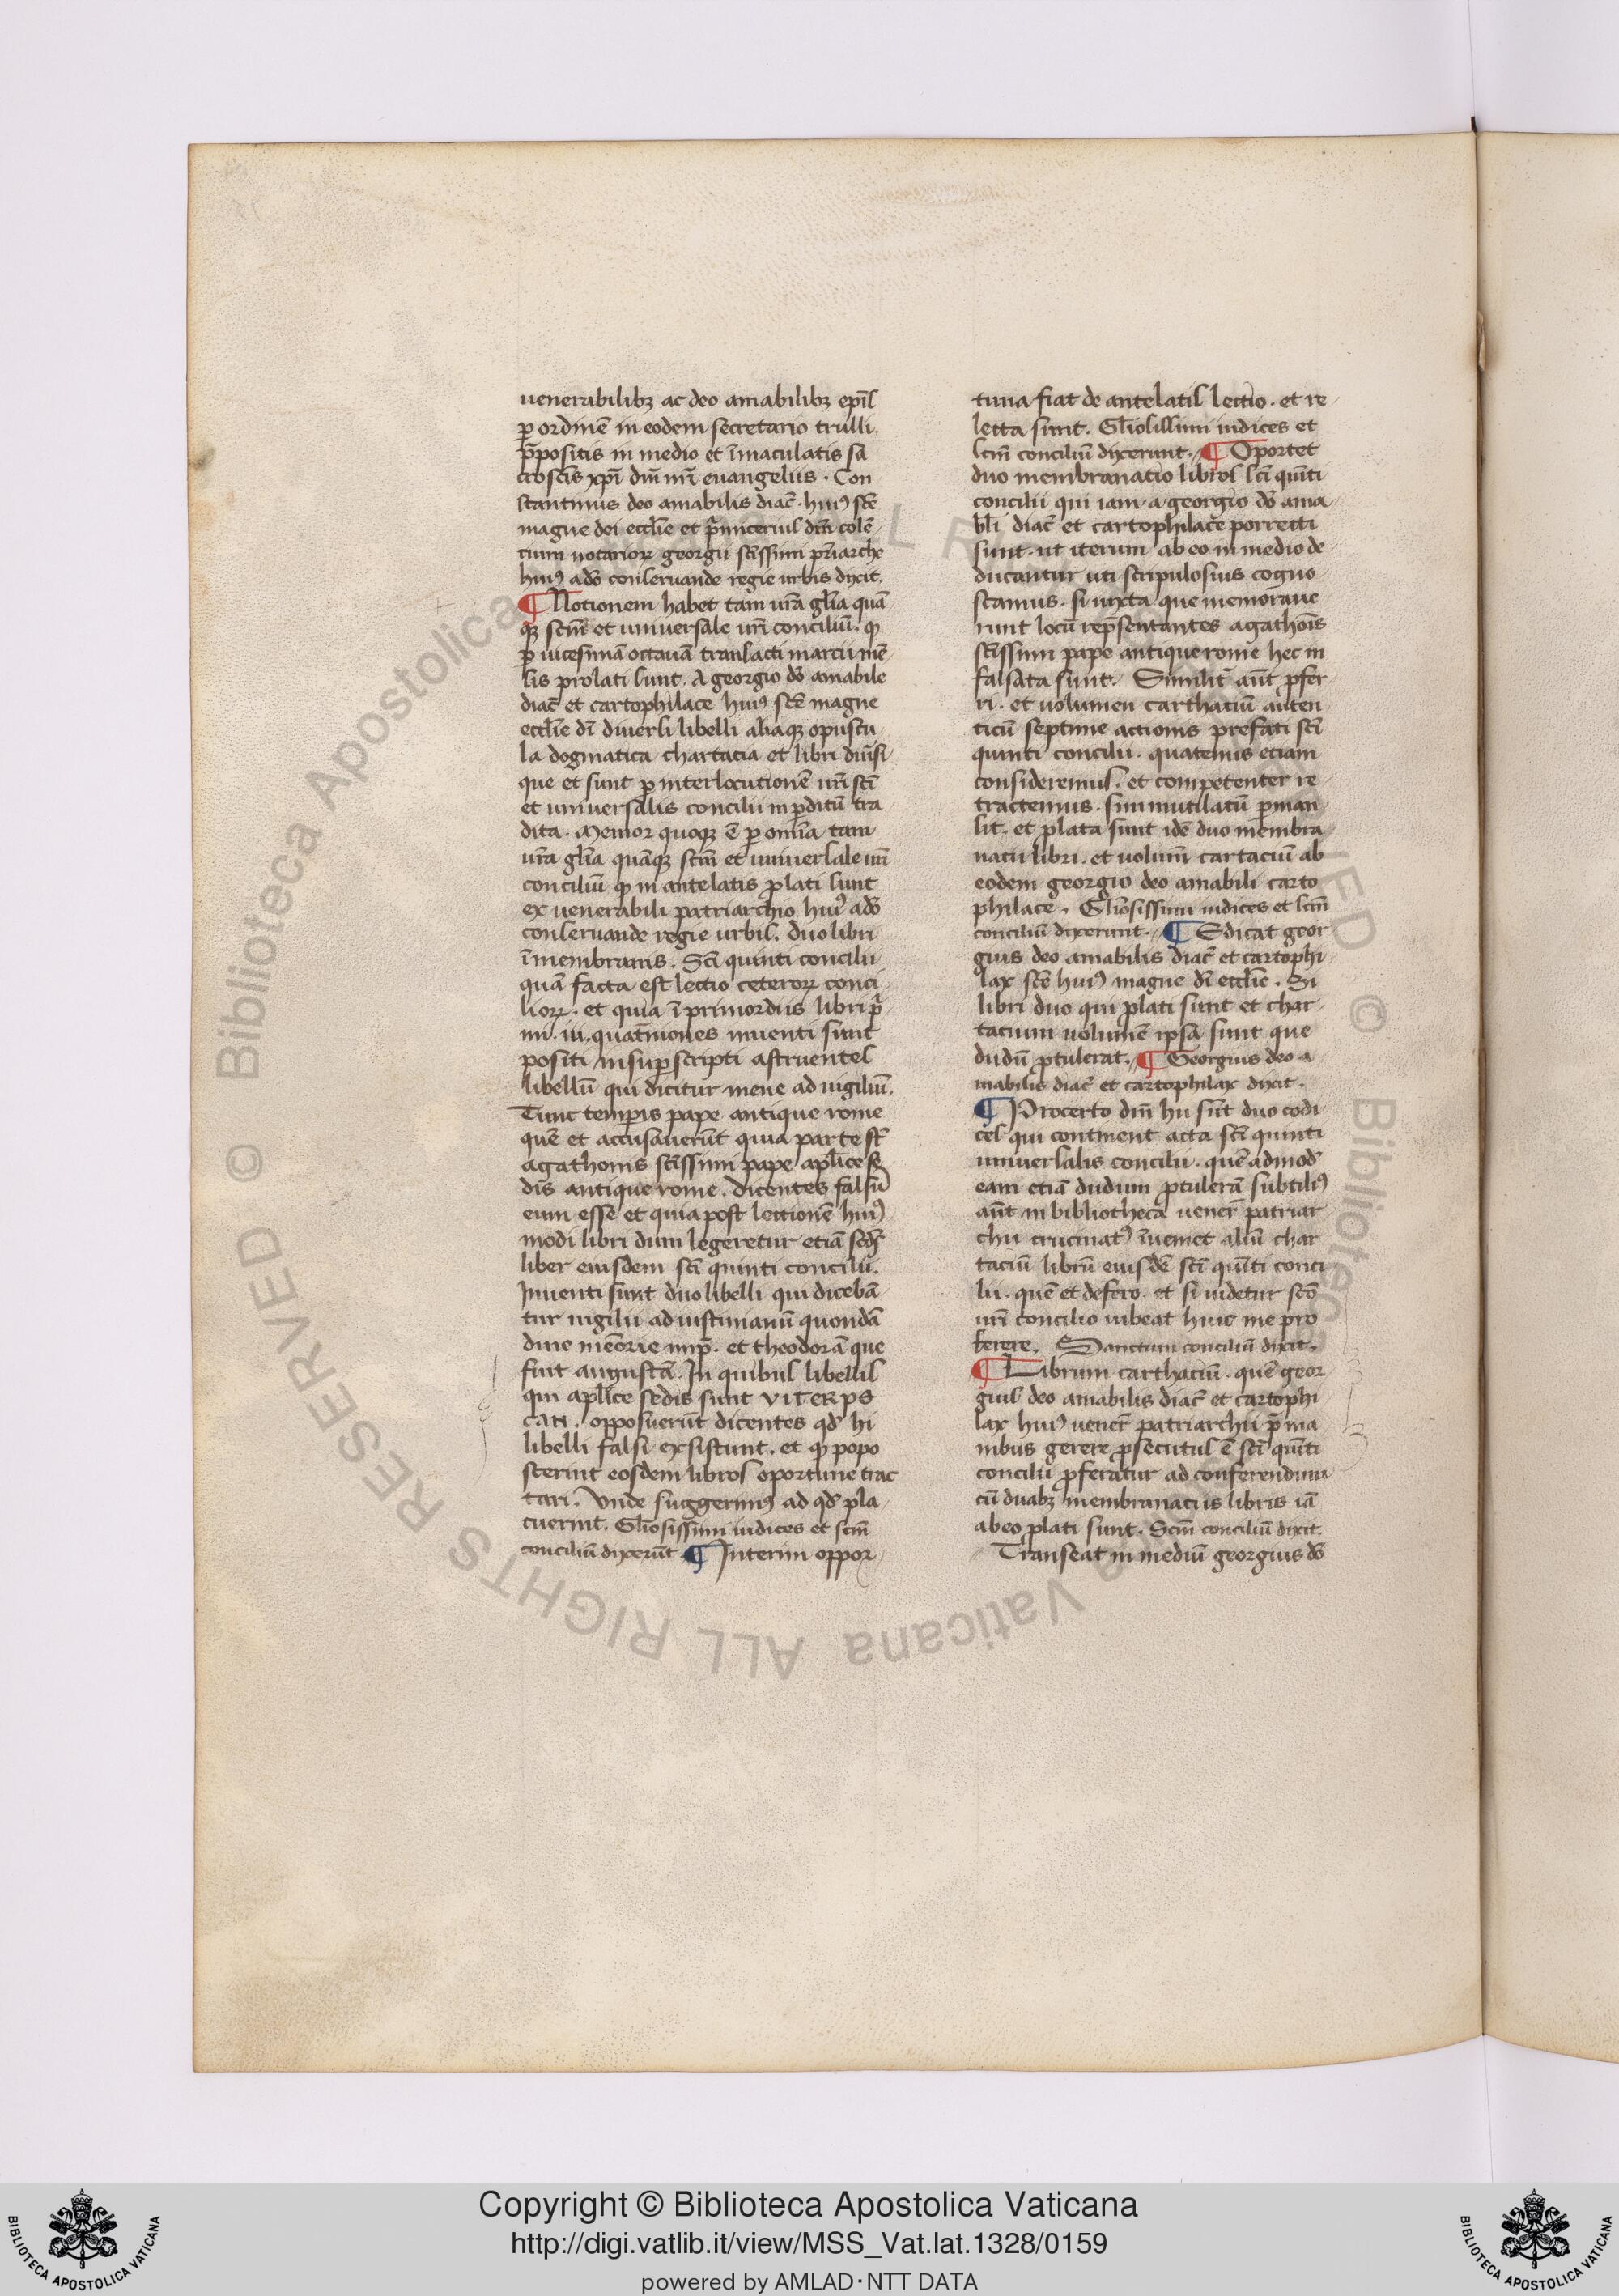 uenerabilibꝫ ac deo amabilibꝫ ep̄is
ꝑ ordinē in eodem secretario trulli.
p̄positis in medio et īmaculatis sā
ctosc̄is xp̄i dn̄i nr̄i euangeliis. Con
stantinus deo amabilis diac̄ huiꝰ sc̄e
magne dei eccl̄ie et p̄micerius dn̄i colē
tium notarioꝝ georgii sc̄issimi pr̄iarche
huiꝰ a dō conseruande regie urbis dixit.
¶ Notionem habet tam ur̄a gl̄ia quā
qꝫ sc̄m et uniuersale ur̄i conciliū. ꝙ
ꝑ uicesimā octauā transacti marcii mē
sis prolati sunt. A georgio dō amabile
diac̄ et cartophilace huiꝰ sc̄e magne
eccl̄ie dī diuersi libelli aliaqꝫ opuscu
la dogmatica chartacia et libri diūsi
que et sunt ꝑ interlocutionē ur̄i sc̄i
et uniuersalis concilii inꝑditū tra
dita. Memor quoqꝫ ē ꝑ omīa tam
ur̄a gl̄ia quāqꝫ sc̄m et uniuersale ur̄i
conciliū ꝙ in antelatis ꝓlati sunt
ex uenerabili patriarchio huiꝰ a dō
conseruande regie urbis. duo libri
ī membranis. Sc̄i quinti concilii
quā facta est lectio ceteroꝝ conci
lioꝝ. et quia ī primordiis libri p̄
mi. iii. quat̄niones inuenti sunt
positi insuꝑscripti astruentes
libellū qui dicitur mene ad uigiliū.
Tunc temꝑis pape antique rome
quē et accusauerūt quia parte st̄
agathonis sc̄issimi pape apl̄ice se
dis antique rome. dicentes falsū
eum esse et quia post lectionē huiꝰ
modi libri dum legeretur etiā scd̄s
liber eiusdem sc̄i quinti concilii.
Inuenti sunt duo libelli qui dicebā
tur uigilii ad iustinianū quondā
diue mēorie imp̄. et theodorā que
fuit augustā. In quibus libellis
qui apl̄ice sedis sunt VITER PS
CATI. opposuerūt dicentes qd̄ hi
libelli falsi exsistunt. et ꝙ popo
scerint eosdem libros oportune trac
tari. Unde suggerimꝰ ad qd̄ pla
cuerint. Gl̄iosissimi iudices et sc̄m
conciliū dixerūt ¶ Interim oppor
tuna fiat de antelatis lectio. et re
lecta sunt. Gl̄iosissimi iudices et
sc̄m conciliū dixerunt. ¶ Oportet
duo membranatio libros sc̄i quīti
concilii qui iam a georgio dō ama
bl̄i diac̄ et cartophilace porrecti
sunt. ut iterum ab eo in medio de
ducantur uti scripulosius cogno
scamus. si iuxta que memoraue
runt locū rep̄sentantes agathois
sc̄issimi pape antique rome hec in
falsata sunt. Similit̄ aūt ꝓfer
ri. et uolumen carthaciū auten
ticū septime actionis prefati sc̄i
quinti concilii. quatenus etiam
consideremus. et competenter re
tractemus. sin mutilatū ꝑman
sit. et ꝓlata sunt idē duo membra
nacii libri. et uolum̄ cartaciū ab
eodem georgio deo amabili carto
philace. Gl̄iosissimi iudices et sc̄m
conciliū dixerunt. ¶ Edicat geor
gius deo amabilis diac̄ et cartophi
lax sc̄e huiꝰ magne dī eccl̄ie. Si
libri duo qui ꝓlati sunt et char
tacium uolumē ipsa sunt que
dudū ꝓtulerat. ¶ Georgius deo a
mabilis diac̄ et cartophilax dixit.
¶ Procerto dn̄i hii sūt duo codi
ces qui continent acta sc̄i quinti
uniuersalis concilii. quē admod̄
eam etiā dudum ꝓtulerā subtiliꝰ
aūt in bibliotheca uener̄ patriar
chii crucinatꝰ īueniet aliū char
taciū librū eiusdē sc̄i quīti conci
lii. quē et defero. et si uidetur sc̄o
ur̄i concilio iubeat hunc me pro
ferere. Sanctum conciliū dixit.
¶ Librum carthaciū. quē geor
gius deo amabilis diac̄ et cartophi
lax huiꝰ uener̄ patriarchii p̄ ma
nibus gerere ꝓsecutus ē sc̄i quīti
concilii ꝓferatur ad conferendum
cū duabꝫ membranaciis libris iā
ab eo ꝓlati sunt. Sc̄m conciliū dixit.
Transeat in mediū georgius dō
Copyright © Biblioteca Apostolica Vaticana
http://digi.vatlib.it/view/MSS_Vat.lat.1328/0159
powered by AMLAD·NTT DATA
BIBLIOTECA APOSTOLICA VATICANA
BIBLIOTECA APOSTOLICA VATICANA